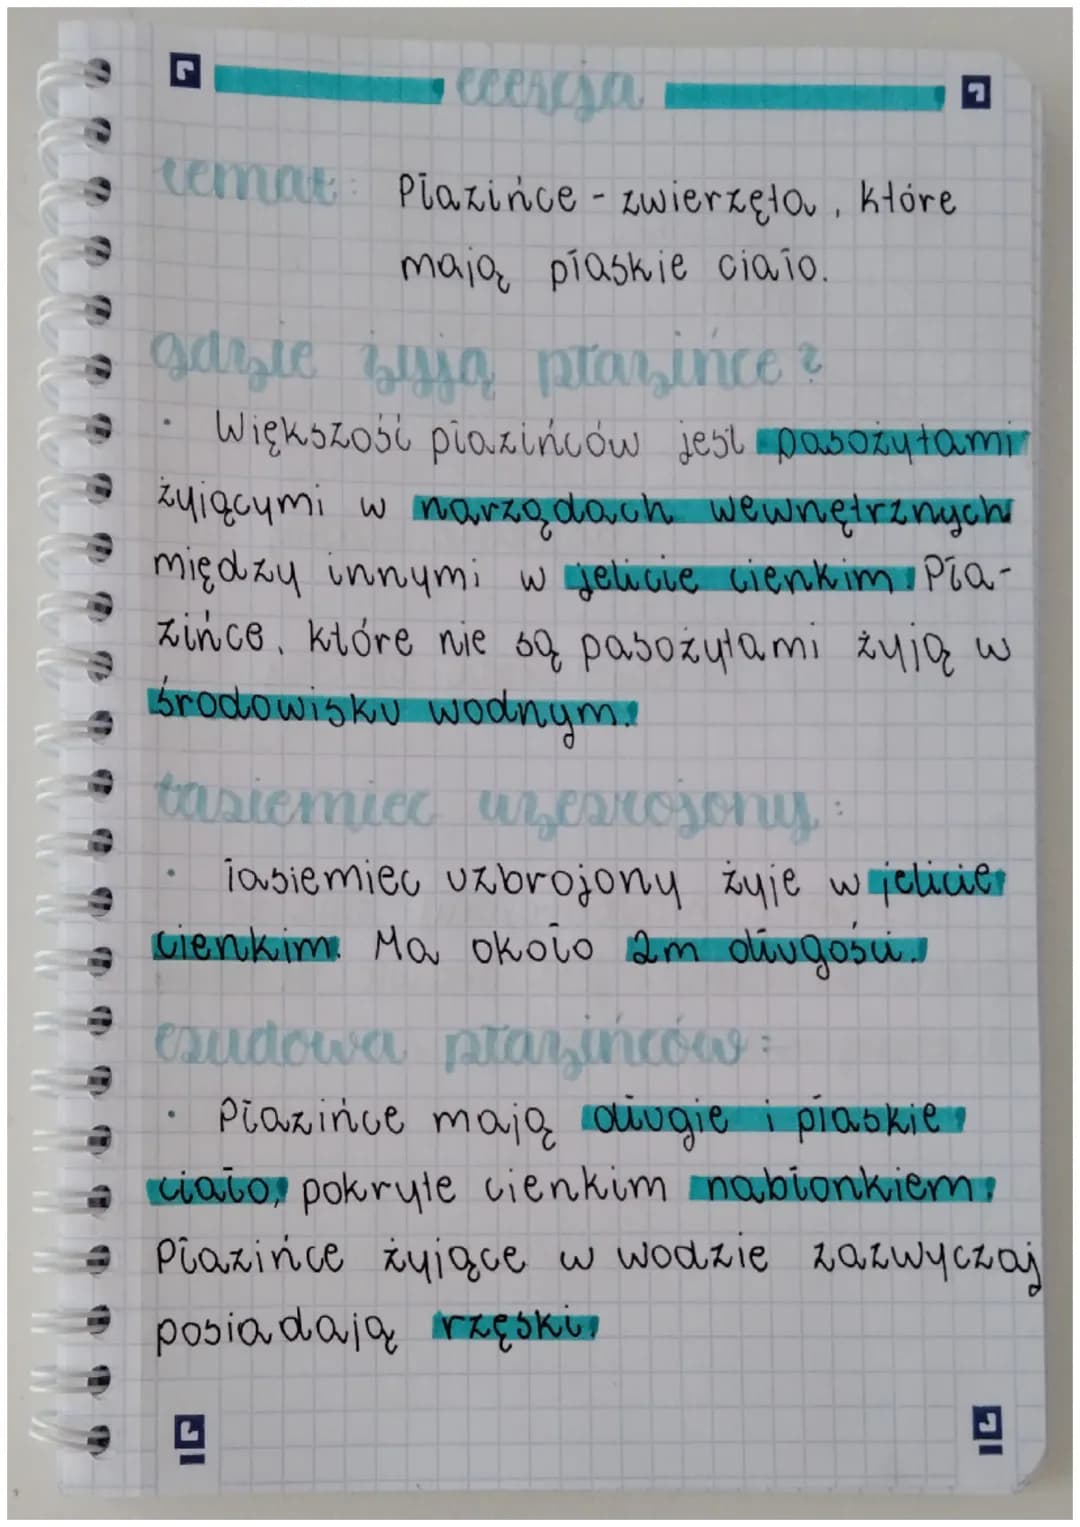 lekcja
temat: Płazińce - zwierzęta, które
mają płaskie ciało.
gdzie żyją płazińce?
• Większość płazińców jest pasożytami
żyjącymi w narządach wewnętrznych
między innymi w jelicie cienkim. Pła-
zińce, które nie są pasożytami żyją w
środowisku wodnym.
tasiemiec uzbrojony:
• Tasiemiec uzbrojony żyje w jelicie
cienkim. Ma około 2m długości.
budowa płazińców:
• Płazińce mają długie i płaskie
ciało, pokryte cienkim nabłonkiem.
Płazińce żyjące w wodzie zazwyczaj
posiadają rzęski.